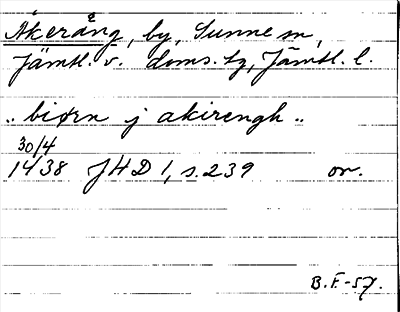 Åkeräng, by, Sunne sn,
Jämtl. v. doms. tg, Jämtl. l.
"biørn j akirengh"
30/4
1438 JHD 1, s. 239 or.
B.F.-57.